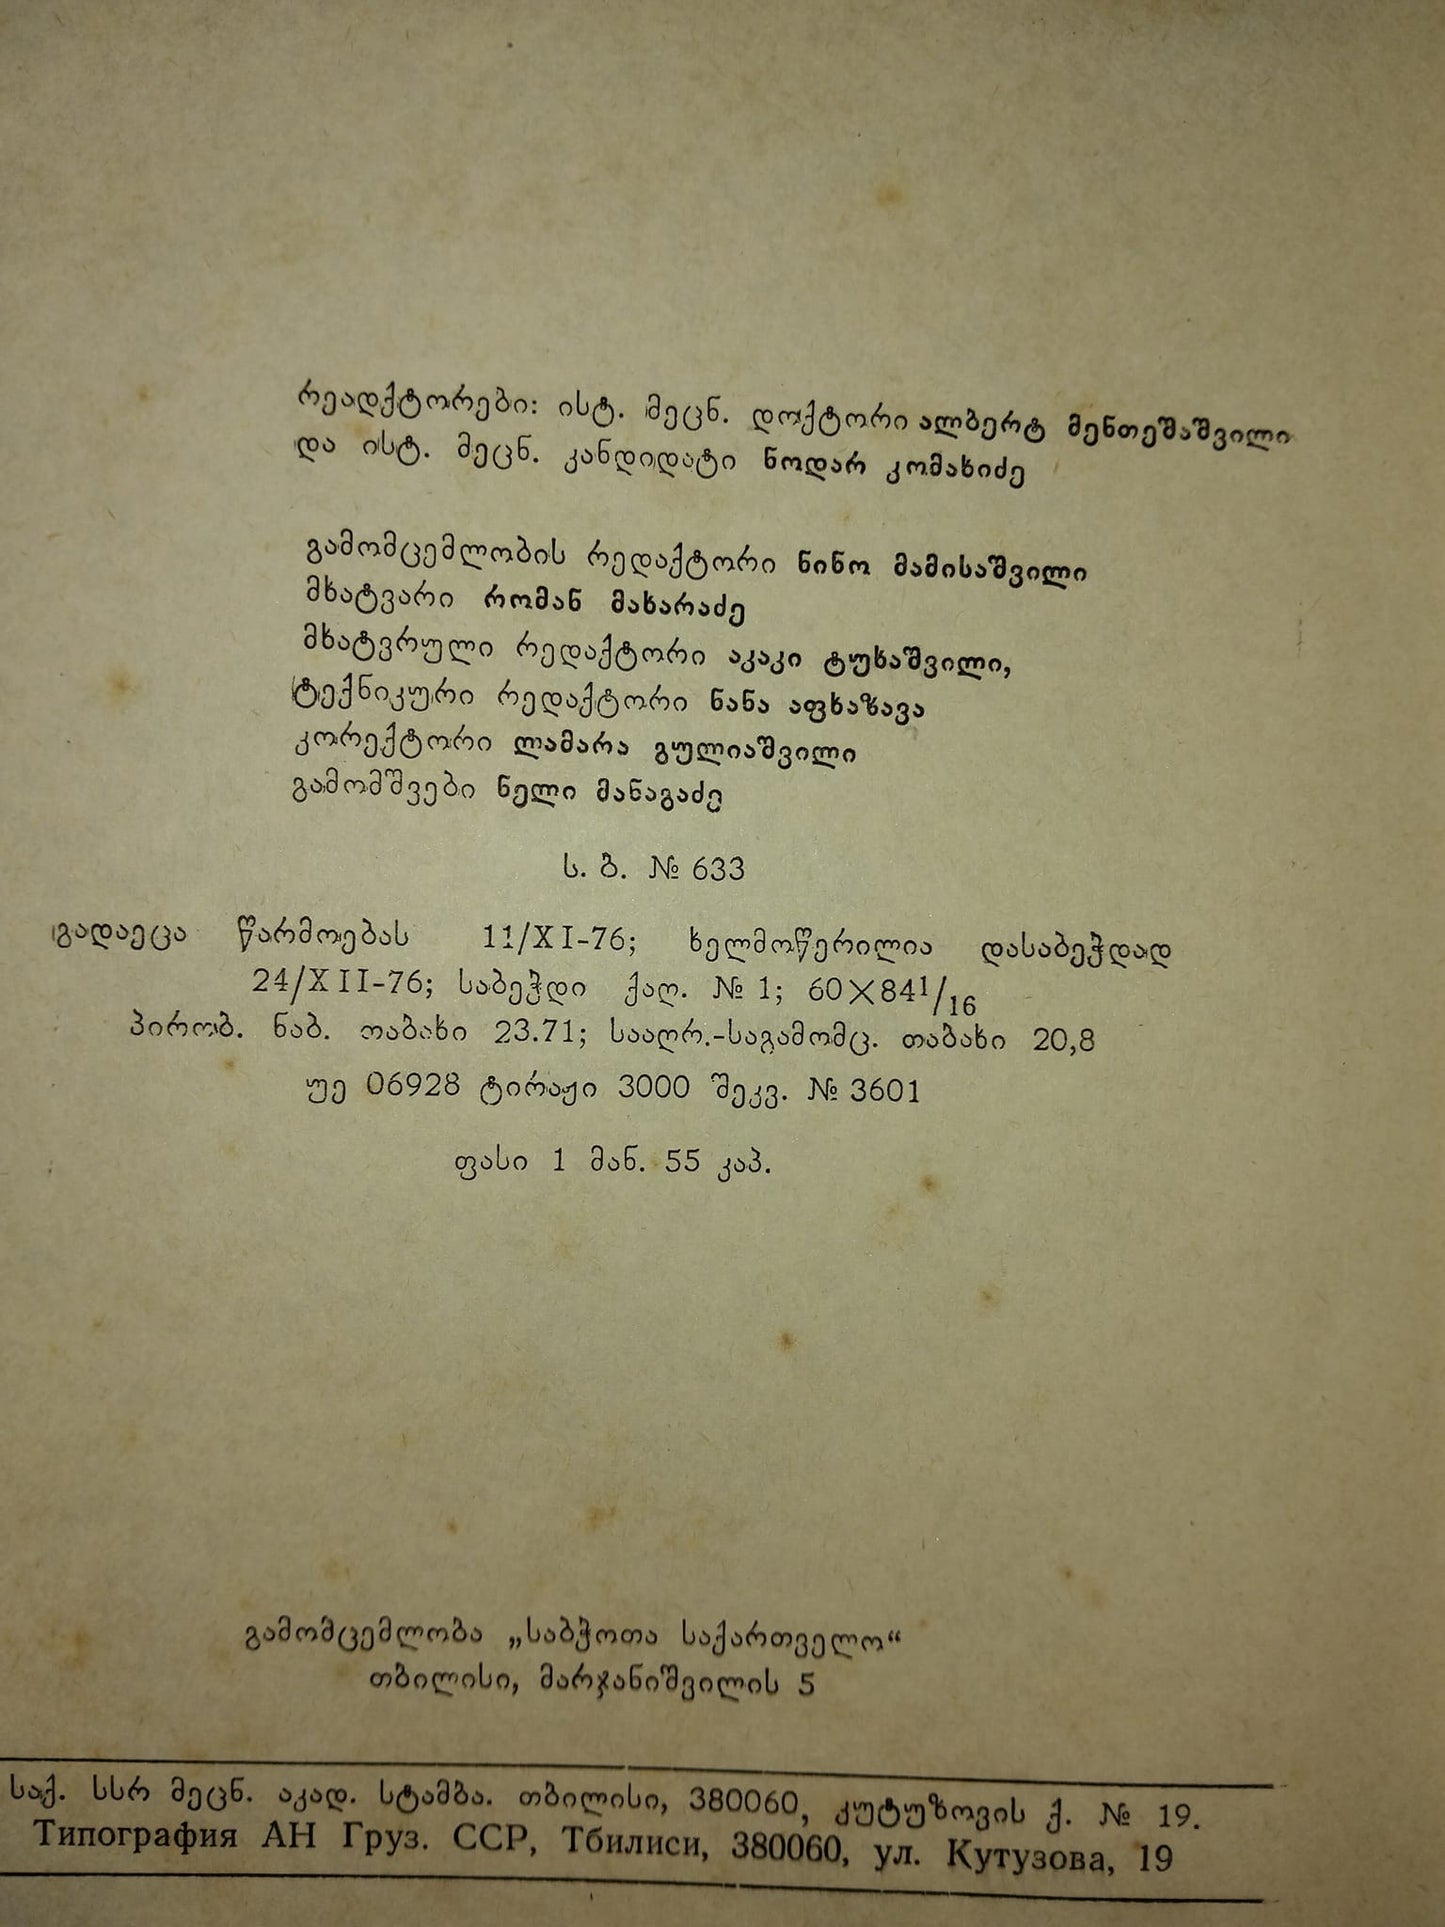 რეადქტორები: ისტ. მეცნ. დოქტორი ალბერტ მენთეშაშვილი
და ისტ. მეცნ. კანდიდატი ნოდარ კომახიძე
გამომცემლობის რედაქტორი ნინო მამისაშვილი
მხატვარი რომან მახარაძე
მხატვრული რედაქტორი აკაკი ტუხაშვილი,
ტექნიკური რედაქტორი ნანა აფხაზავა
კორექტორი ლამარა გულიაშვილი
გამომშვები ნელი მანაგაძე
ს. ბ. № 633
გადაეცა წარმოებას 11/XI-76; ხელმოწერილია დასაბეჭდად
24/XII-76; საბეჭდი ქაღ. № 1; 60×84¹/₁₆
პირობ. ნაბ. თაბახი 23.71; სააღრ.-საგამომც. თაბახი 20,8
უე 06928 ტირაჟი 3000 შეკვ. № 3601
ფასი 1 მან. 55 კაპ.
გამომცემლობა „საბჭოთა საქართველო“
თბილისი, მარჯანიშვილის 5
საქ. სსრ მეცნ. აკად. სტამბა. თბილისი, 380060, კუტუზოვის ქ. № 19.
Типография АН Груз. ССР, Тбилиси, 380060, ул. Кутузова, 19